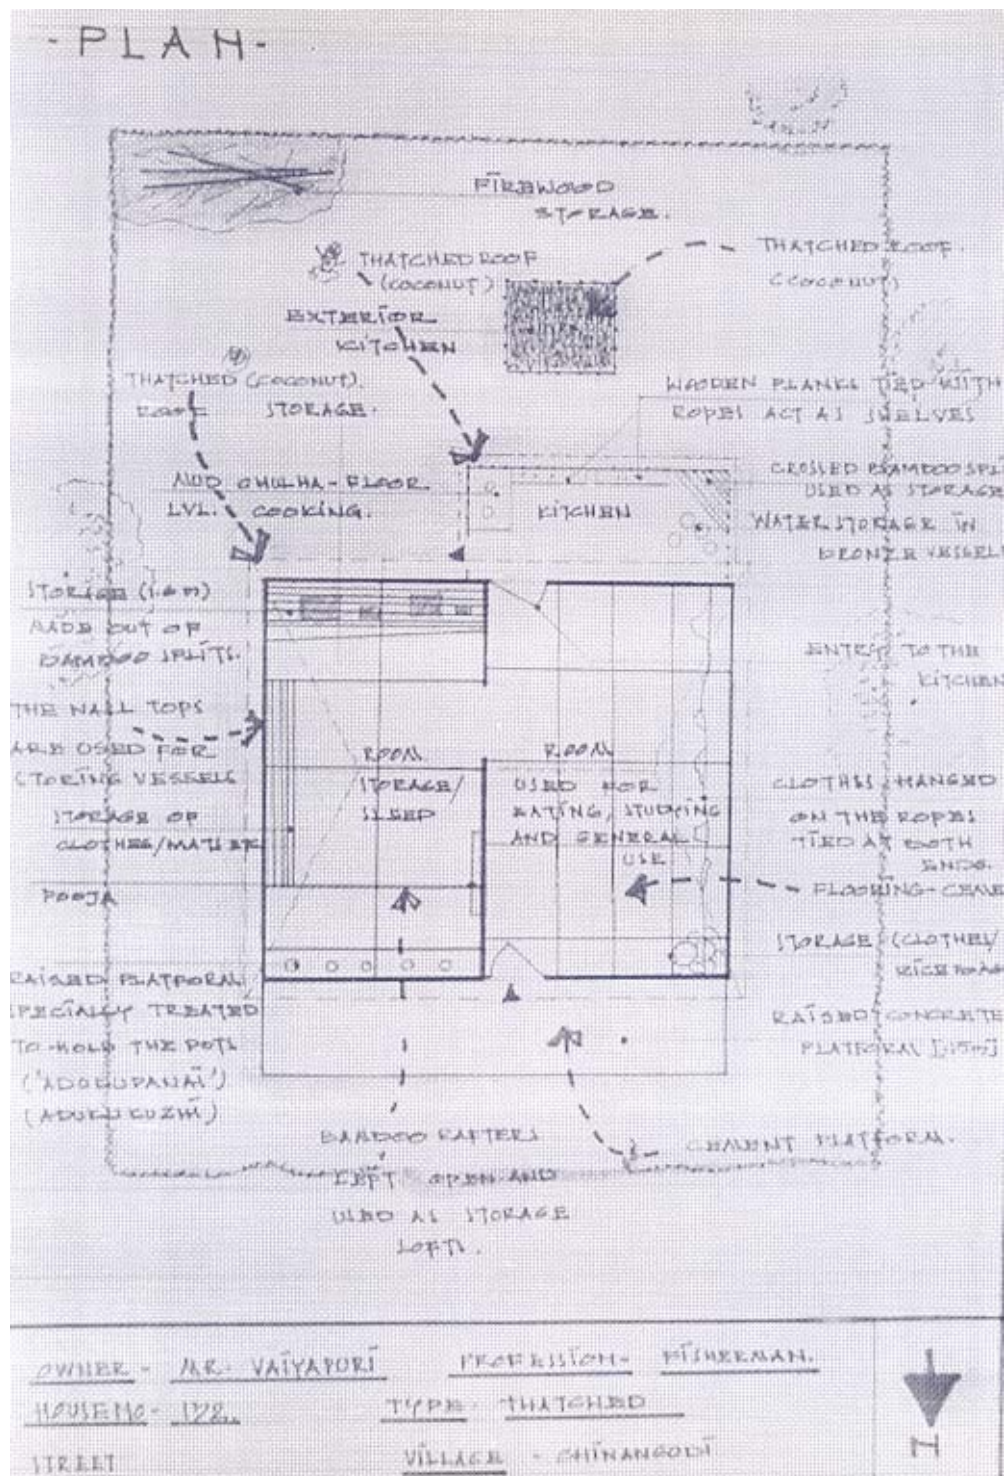 - PLAN -
FIREWOOD
STORAGE.
THATCHED ROOF
(COCONUT)
THATCHED ROOF.
(COCONUT)
EXTERIOR
KITCHEN
THATCHED (COCONUT).
ROOF STORAGE.
WOODEN PLANKS TIED WITH
ROPES ACT AS SHELVES
MUD CHULHA - FLOOR
LVL. COOKING.
KITCHEN
CROSSED BAMBOO SPLI
USED AS STORAGE
WATER STORAGE IN
BRONZE VESSEL
STORAGE (1.6m)
MADE OUT OF
BAMBOO SPLITS.
ENTRY TO THE
KITCHEN
THE WALL TOPS
ARE USED FOR
STORING VESSELS
ROOM
STORAGE/
SLEEP
ROOM
USED FOR
EATING, STUDYING
AND GENERAL
USE
CLOTHES HANGED
ON THE ROPES
TIED AT BOTH
ENDS.
STORAGE OF
CLOTHES/
FLOORING - CEME
POOJA
STORAGE (CLOTHES/
RAISED PLATFORM
SPECIALLY TREATED
TO HOLD THE POTS
('ADUKUPANAI')
(ADUKUKUZHI)
RAISED CONCRETE
PLATFORM
CEMENT PLATFORM.
BAMBOO RAFTERS
LEFT OPEN AND
USED AS STORAGE
LOFTS.
OWNER - MR. VAIYAPURI PROFESSION - FISHERMAN.
HOUSE NO - TYPE - THATCHED
STREET VILLAGE - CHINANGUDI
N